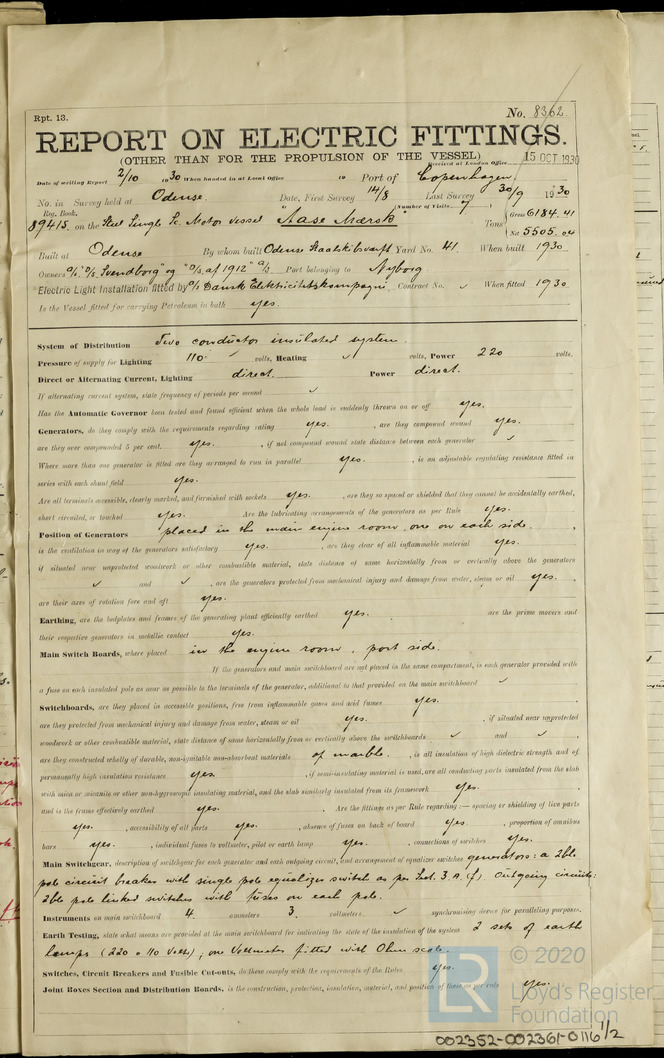 Rpt. 13.
No. 8362
REPORT ON ELECTRIC FITTINGS.
(OTHER THAN FOR THE PROPULSION OF THE VESSEL)
Received at London Office 15 OCT 1930
Date of writing Report 2/10 1930 When handed in at Local Office 19 Port of Copenhagen.
No. in Survey held at Odense. Date, First Survey 14/8 Last Survey 30/9 1930
Reg. Book. (Number of Visits 7)
89415 on the Steel Single Sc. Motor vessel "Aase Mærsk" Tons Gross 6184.41
Net 5505.04
Built at Odense By whom built Odense Staalskibsværft Yard No. 41. When built 1930.
Owners A/S. D/S. Svendborg" og "D/S. af 1912" A/S Port belonging to Nyborg
Electric Light Installation fitted by A/S Dansk Elektricitetskompagni. Contract No. ✓ When fitted 1930
Is the Vessel fitted for carrying Petroleum in bulk yes.
System of Distribution Two conductor insulated system.
Pressure of supply for Lighting 110 ✓ volts, Heating ✓ volts, Power 220 volts.
Direct or Alternating Current, Lighting direct. Power direct.
If alternating current system, state frequency of periods per second ✓
Has the Automatic Governor been tested and found efficient when the whole load is suddenly thrown on or off yes.
Generators, do they comply with the requirements regarding rating yes. , are they compound wound yes.
are they over compounded 5 per cent. yes. , if not compound wound state distance between each generator ✓
Where more than one generator is fitted are they arranged to run in parallel yes. , is an adjustable regulating resistance fitted in
series with each shunt field yes.
Are all terminals accessible, clearly marked, and furnished with sockets yes. , are they so spaced or shielded that they cannot be accidentally earthed,
short circuited, or touched yes. Are the lubricating arrangements of the generators as per Rule yes.
Position of Generators placed in the main engine room, one on each side.
is the ventilation in way of the generators satisfactory yes. , are they clear of all inflammable material yes.
if situated near unprotected woodwork or other combustible material, state distance of same horizontally from or vertically above the generators
✓ and ✓ , are the generators protected from mechanical injury and damage from water, steam or oil yes.
are their axes of rotation fore and aft yes.
Earthing, are the bedplates and frames of the generating plant efficiently earthed yes. are the prime movers and
their respective generators in metallic contact yes.
Main Switch Boards, where placed in the engine room, port side.
If the generators and main switchboard are not placed in the same compartment, is each generator provided with
a fuse on each insulated pole as near as possible to the terminals of the generator, additional to that provided on the main switchboard ✓
Switchboards, are they placed in accessible positions, free from inflammable gases and acid fumes yes.
are they protected from mechanical injury and damage from water, steam or oil yes. , if situated near unprotected
woodwork or other combustible material, state distance of same horizontally from or vertically above the switchboards ✓ and ✓
are they constructed wholly of durable, non-ignitable non-absorbent materials of marble. , is all insulation of high dielectric strength and of
permanently high insulation resistance yes. , if semi-insulating material is used, are all conducting parts insulated from the slab
with mica or micanite or other non-hygroscopic insulating material, and the slab similarly insulated from its framework yes.
and is the frame effectively earthed yes. Are the fittings as per Rule regarding:— spacing or shielding of live parts
yes. , accessibility of all parts yes. , absence of fuses on back of board yes. , proportion of omnibus
bars yes. , individual fuses to voltmeter, pilot or earth lamp yes. , connections of switches yes.
Main Switchgear, description of switchgear for each generator and each outgoing circuit, and arrangement of equalizer switches generators: a 2ble
pole circuit breaker with single pole equalizer switch as per Sect. 3. A. (f). Outgoing circuits:
2ble pole linked switches with fuses on each pole.
Instruments on main switchboard 4 ammeters 3. voltmeters ✓ synchronising device for paralleling purposes.
Earth Testing, state what means are provided at the main switchboard for indicating the state of the insulation of the system 2 sets of earth
lamps (220 & 110 Volts), one Voltmeter fitted with Ohm scale.
Switches, Circuit Breakers and Fusible Cut-outs, do these comply with the requirements of the Rules yes.
Joint Boxes Section and Distribution Boards, is the construction, protection, insulation, material, and position of these as per rule yes.
© 2020
Lloyd's Register
Foundation
002352-002361-0116 1/2